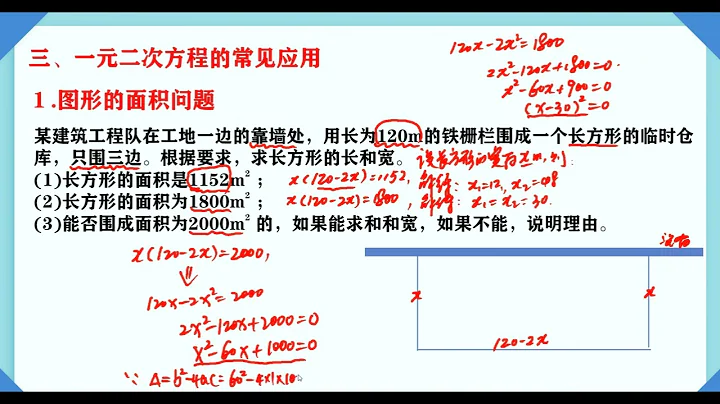 三、一元二次方程的常见应用
1.图形的面积问题
120x-2x²=1800
2x²-120x+1800=0.
x²-60x+900=0
(x-30)²=0
某建筑工程队在工地一边的靠墙处，用长为120m的铁栅栏围成一个长方形的临时仓
库，只围三边。根据要求，求长方形的长和宽。
设长方形的宽为xm,则:
(1)长方形的面积是1152m²；
x(120-2x)=1152, 解得: x₁=12, x₂=48
(2)长方形的面积为1800m²；
x(120-2x)=1800, 解得: x₁=x₂=30.
(3)能否围成面积为2000m²的，如果能求和和宽，如果不能，说明理由。
x(120-2x)=2000,
⇓
120x-2x²=2000
2x²-120x+2000=0
x²-60x+1000=0
∵ Δ=b²-4ac=60²-4×1×10
x
x
120-2x